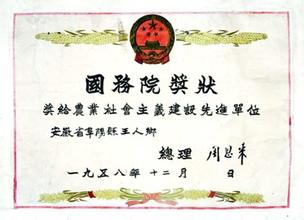 國務院獎狀
獎給農業社會主義建設先進單位
安徽省阜陽縣王人鄉
總理 周恩來
一九五八年十二月 日